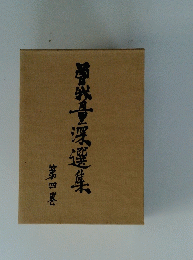 曽我量深選集
第四巻